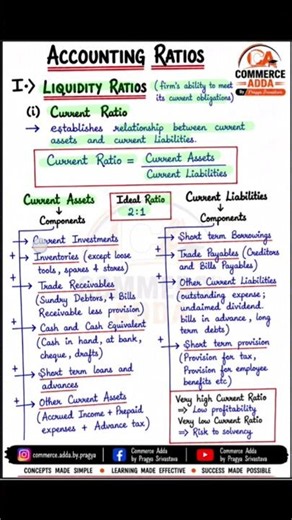 ACCOUNTING RATIOS
CA
COMMERCE
ADDA
By Pragya Srivastava
I.> LIQUIDITY RATIOS (firm's ability to meet
its current obligations)
(i) Current Ratio
→ establishes relationship between current
assets and current liabilities.
Current Ratio = Current Assets
Current Liabilities
Current Assets
↓
Components
Ideal Ratio
2:1
Current Liabilities
↓
Components
+ → Current Investments
+ → Inventories (except loose
tools, spares & stores)
+ → Trade Receivables
(Sundry Debtors, & Bills
Receivable less provision)
+ → Cash and Cash Equivalent
(Cash in hand, at bank,
cheque, drafts)
+ → Short term loans and
advances
+ → Other Current Assets
(Accrued Income + Prepaid
expenses + Advance tax)
+ → Short term Borrowings
+ → Trade Payables (Creditors
and Bills Payables)
+ → Other Current Liabilities
(outstanding expense;
unclaimed dividend.
bills in advance, long
term debts)
+ → Short term provision
(Provision for tax,
Provision for employee
benefits etc)
Very high Current Ratio
⇒ Low profitability
Very low Current Ratio
⇒ Risk to solvency
commerce.adda.by.pragya
Commerce Adda
by Pragya Srivastava
Commerce Adda
by Pragya Srivastava
CONCEPTS MADE SIMPLE • LEARNING MADE EFFECTIVE • SUCCESS MADE POSSIBLE